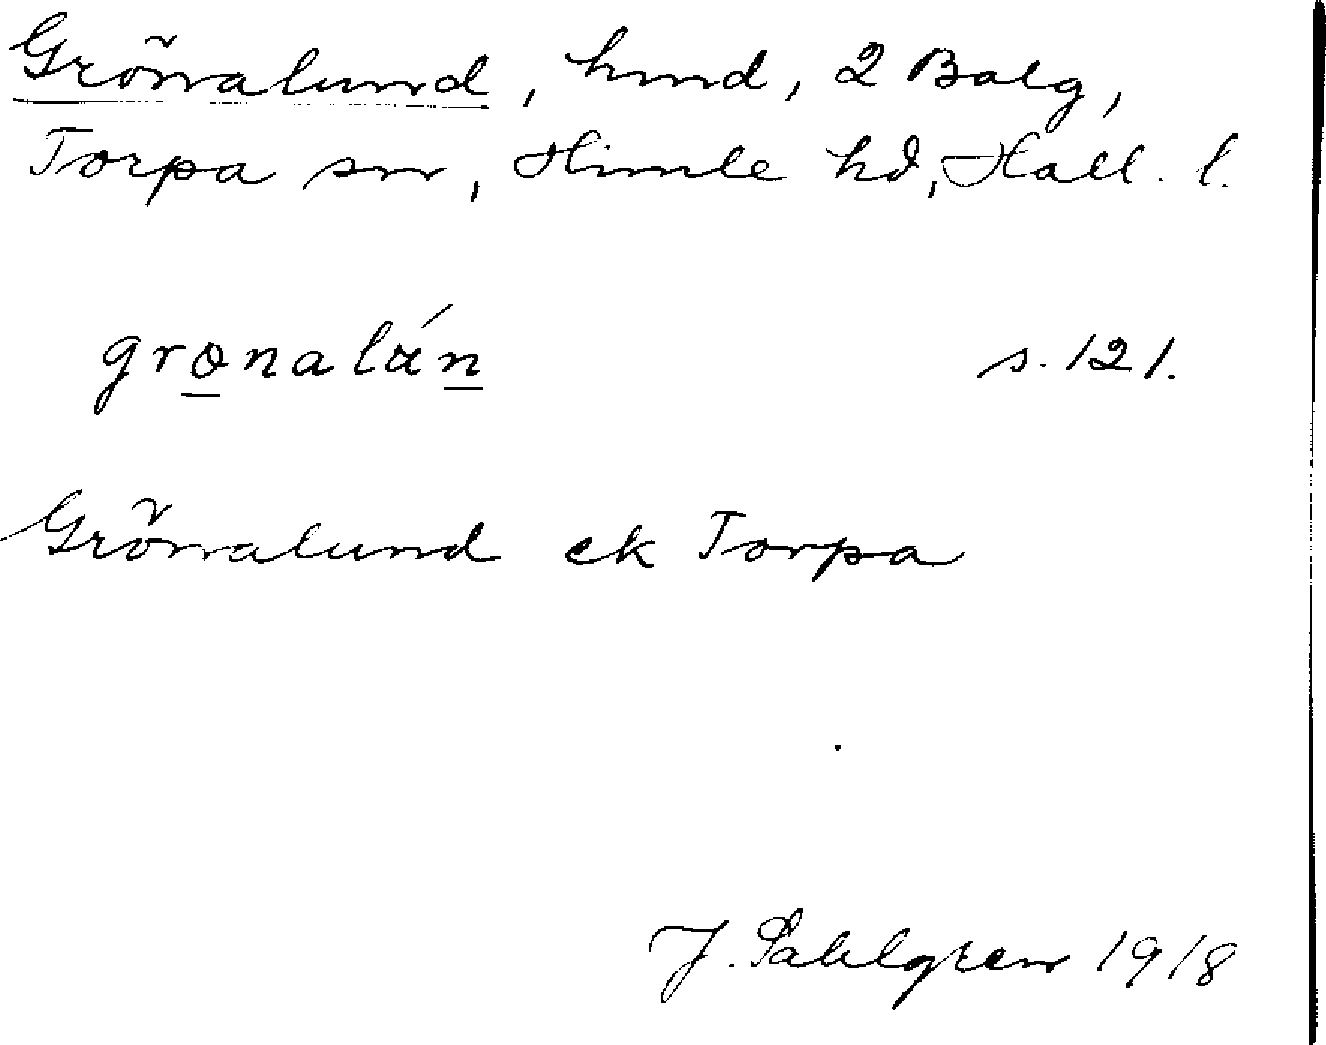 Grönalund, hmd, 2 Balg,
Torpa sn, Himle hd, Hall. l.
gronalán s. 121.
Grönalund ek Torpa
J. Sahlgren 1918